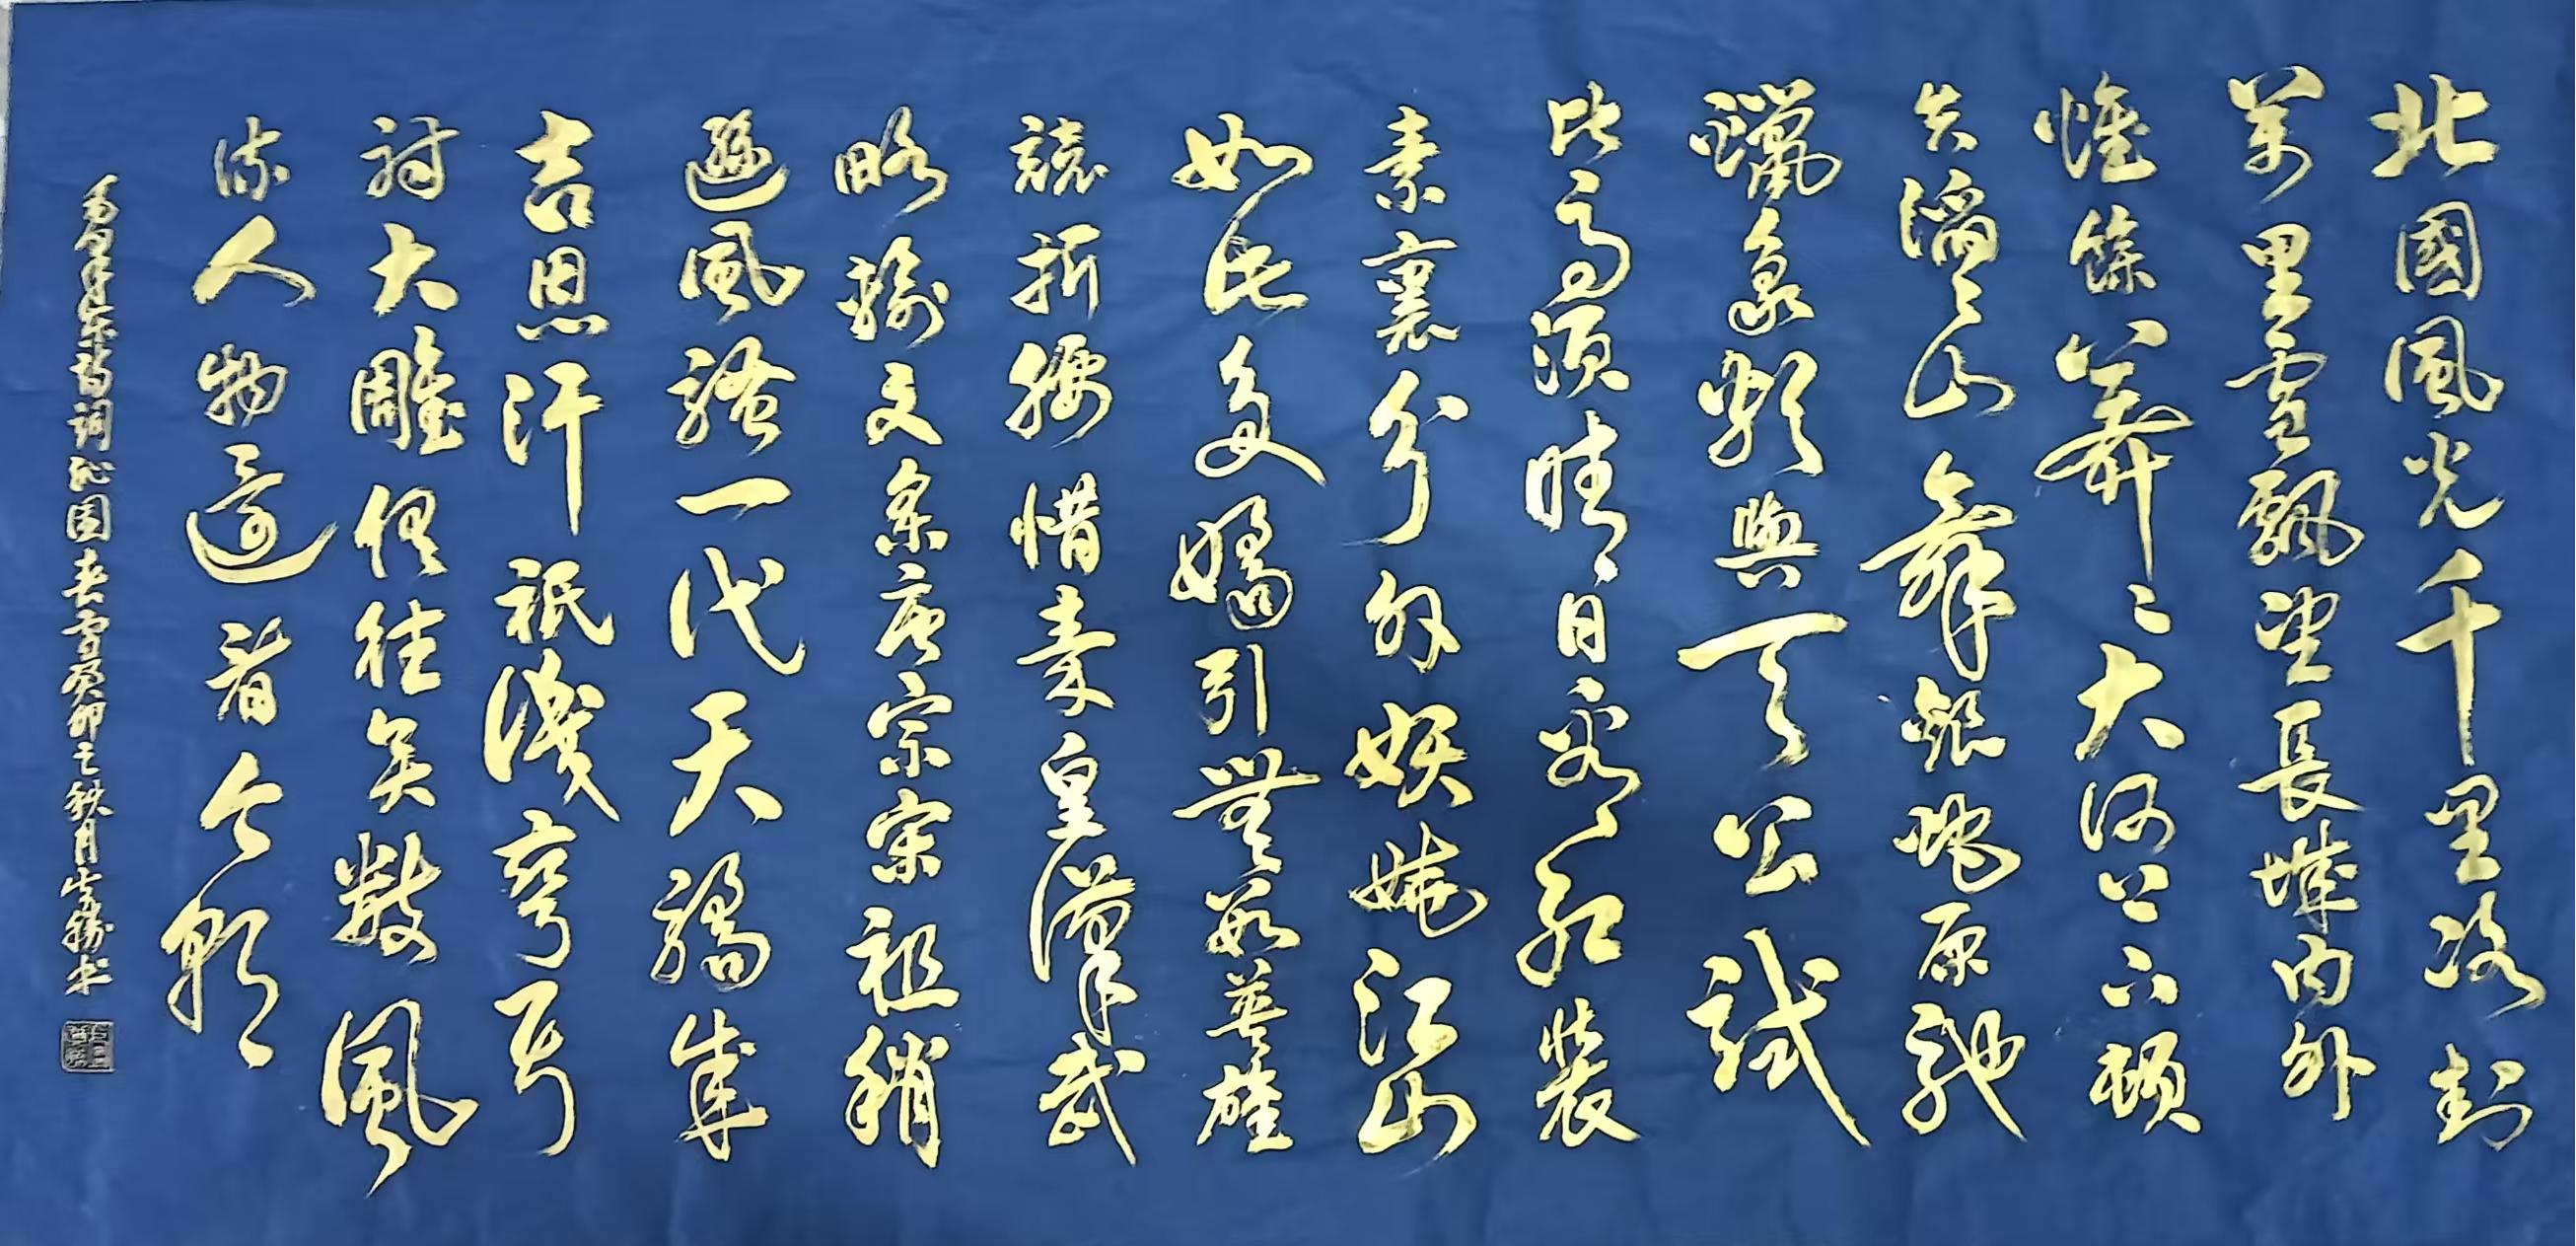 北國風光千里冰封
萬里雪飄望長城內外
惟餘莽々大河上下頓
失滔々山舞銀蛇原馳
蠟象欲與天公試
比高須晴日看紅裝
素裹分外妖嬈江山
如此多嬌引無數英雄
競折腰惜秦皇漢武
略輸文采唐宗宋祖稍
遜風騷一代天驕成
吉思汗祇識彎弓
射大雕俱往矣數風
流人物還看今朝
毛澤東詩詞沁園春雪癸卯之秋月生勝书